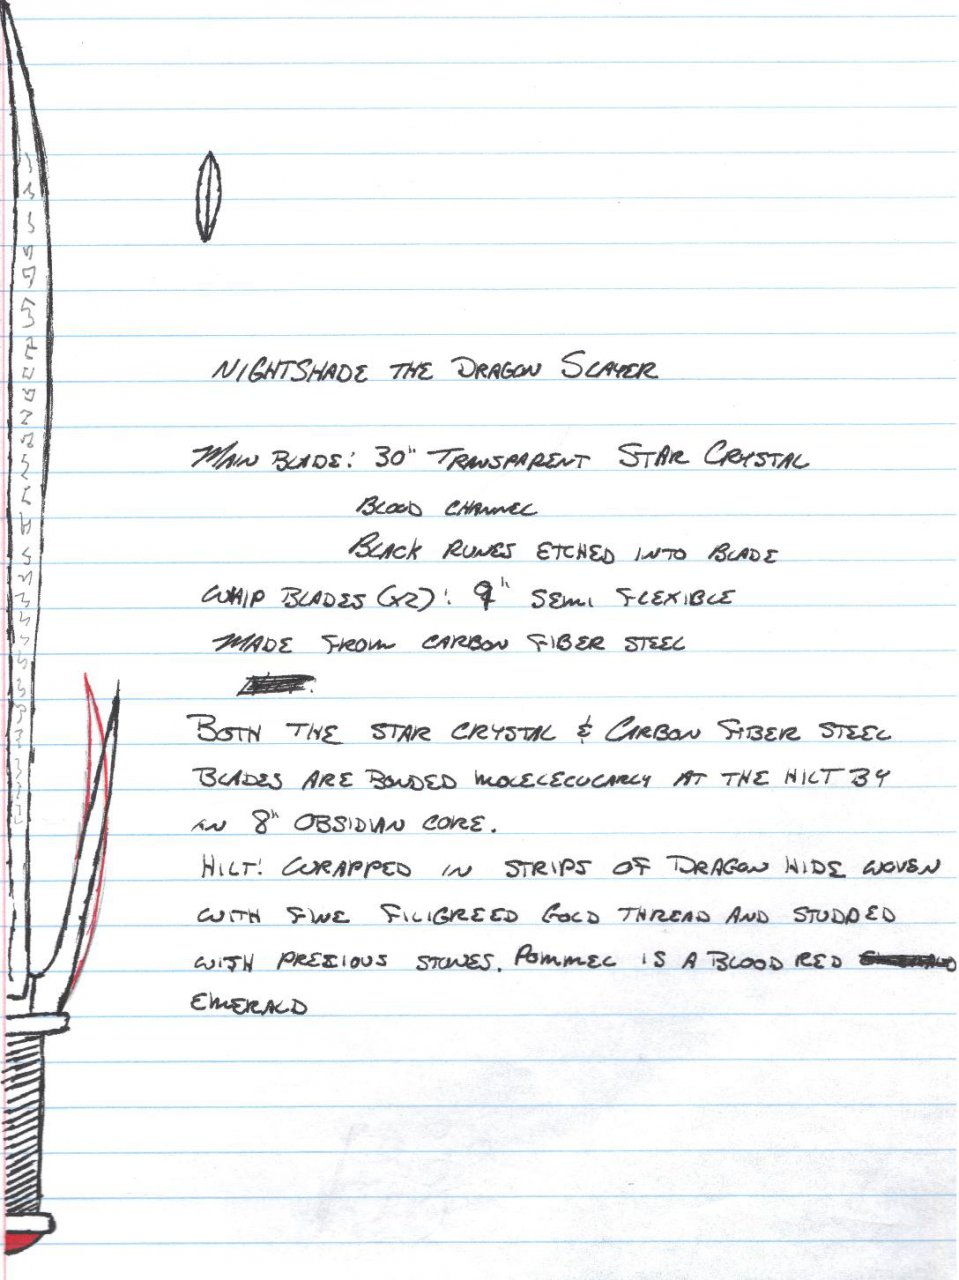 NIGHTSHADE THE DRAGON SLAYER
MAIN BLADE: 30" TRANSPARENT STAR CRYSTAL
BLOOD CHANNEL
BLACK RUNES ETCHED INTO BLADE
WHIP BLADES (x2): 9" SEMI FLEXIBLE
MADE FROM CARBON FIBER STEEL
BOTH THE STAR CRYSTAL & CARBON FIBER STEEL
BLADES ARE BONDED MOLELECULARLY AT THE HILT BY
AN 8" OBSIDIAN CORE.
HILT: WRAPPED IN STRIPS OF DRAGON HIDE WOVEN
WITH FINE FILIGREED GOLD THREAD AND STUDDED
WITH PRECIOUS STONES. POMMEL IS A BLOOD RED
EMERALD